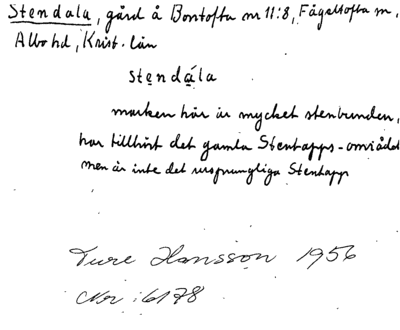 Stendala, gård å Bontofta nr 11:8, Fågeltofta sn,
Albo hd, Krist. län
stẹndá̤la
marken här är mycket stenbunden,
har tillhört det gamla Stentapps-området
men är inte det ursprungliga Stentapp
Ture Hansson 1956